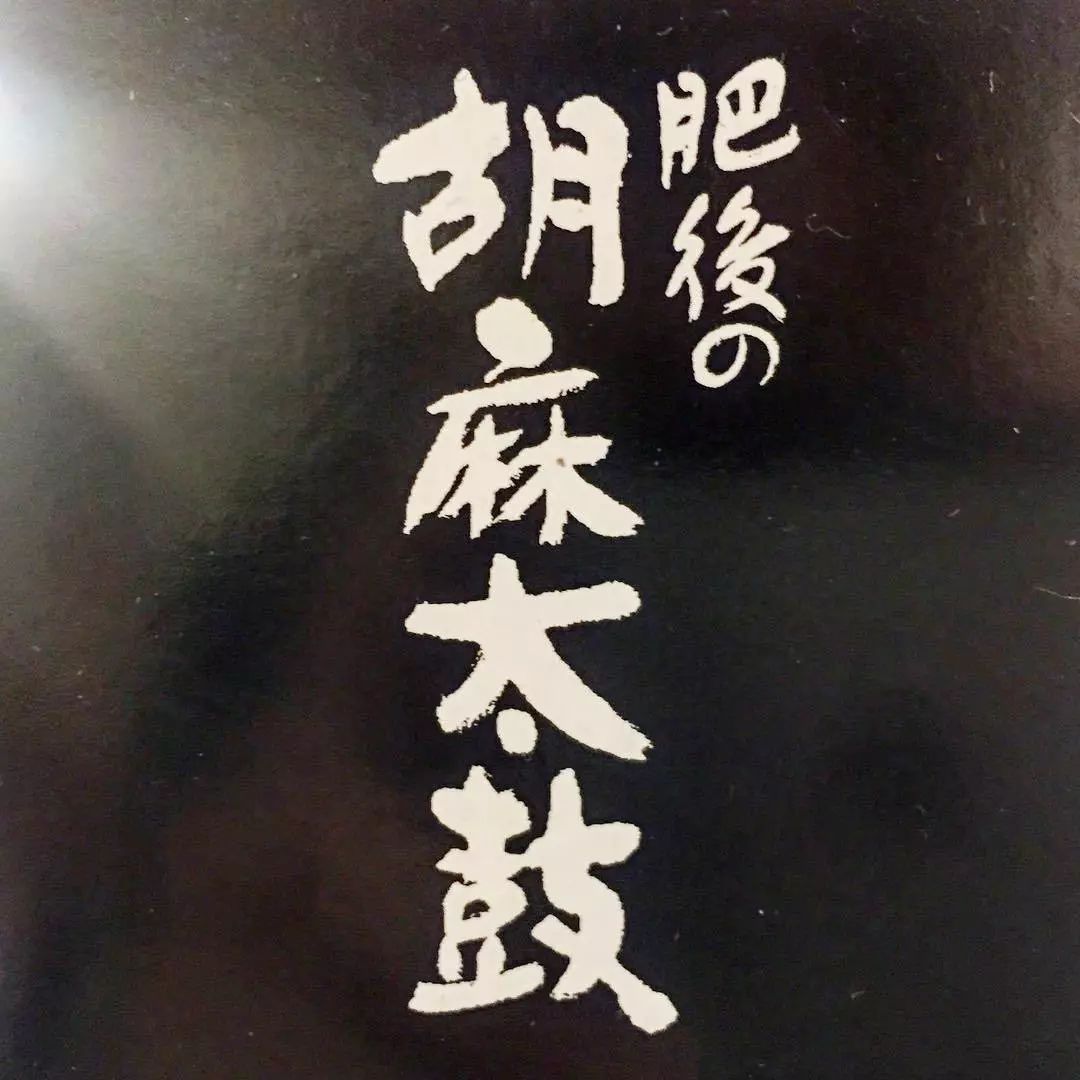 肥後の
胡麻太鼓